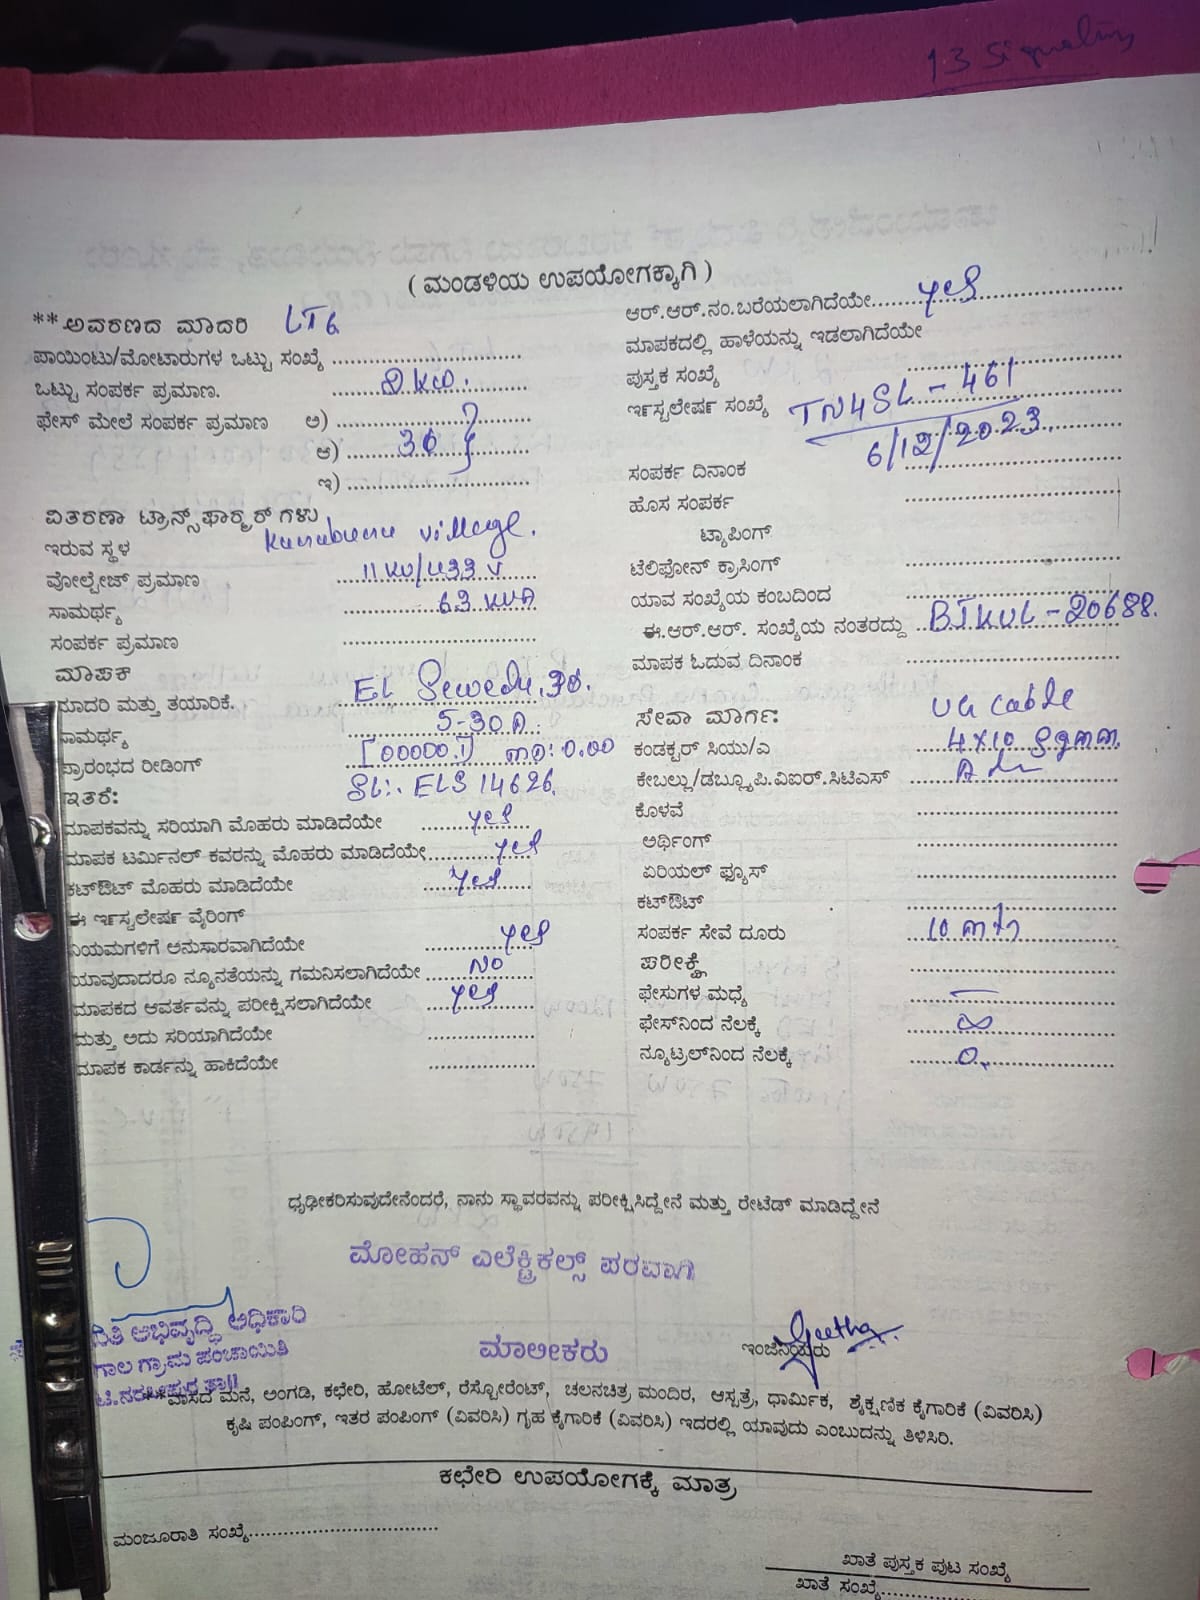 13 Signaling
( ಮಂಡಳಿಯ ಉಪಯೋಗಕ್ಕಾಗಿ )
**ಅವರಣದ ಮಾದರಿ LT6
ಪಾಯಿಂಟು/ಮೋಟಾರುಗಳ ಒಟ್ಟು ಸಂಖ್ಯೆ
ಒಟ್ಟು ಸಂಪರ್ಕ ಪ್ರಮಾಣ. 2 KW.
ಫೇಸ್ ಮೇಲೆ ಸಂಪರ್ಕ ಪ್ರಮಾಣ ಅ)
ಆ) 3ϕ
ಇ)
ವಿತರಣಾ ಟ್ರಾನ್ಸ್‌ಫಾರ್ಮರ್ ಗಳು
ಇರುವ ಸ್ಥಳ village.
ವೋಲ್ಟೇಜ್ ಪ್ರಮಾಣ 11KV/433 V
ಸಾಮರ್ಥ್ಯ 63 KVA
ಸಂಪರ್ಕ ಪ್ರಮಾಣ
ಮಾಪಕ
ಮಾದರಿ ಮತ್ತು ತಯಾರಿಕೆ. EL Sewedy, 3ϕ.
ಸಾಮರ್ಥ್ಯ 5-30A.
ಪ್ರಾರಂಭದ ರೀಡಿಂಗ್ [00000.1] MD: 0.00
ಇತರೆ: SL:. ELS 14626.
ಮಾಪಕವನ್ನು ಸರಿಯಾಗಿ ಮೊಹರು ಮಾಡಿದೆಯೇ yes
ಮಾಪಕ ಟರ್ಮಿನಲ್ ಕವರನ್ನು ಮೊಹರು ಮಾಡಿದೆಯೇ yes
ಕಟ್‌ಔಟ್ ಮೊಹರು ಮಾಡಿದೆಯೇ yes
ಈ ಇನ್‌ಸ್ಟಲೇಷನ್ ವೈರಿಂಗ್
ನಿಯಮಗಳಿಗೆ ಅನುಸಾರವಾಗಿದೆಯೇ yes
ಯಾವುದಾದರೂ ನ್ಯೂನತೆಯನ್ನು ಗಮನಿಸಲಾಗಿದೆಯೇ NO
ಮಾಪಕದ ಆವರ್ತವನ್ನು ಪರೀಕ್ಷಿಸಲಾಗಿದೆಯೇ yes
ಮತ್ತು ಅದು ಸರಿಯಾಗಿದೆಯೇ
ಮಾಪಕ ಕಾರ್ಡನ್ನು ಹಾಕಿದೆಯೇ
ಆರ್.ಆರ್.ನಂ.ಬರೆಯಲಾಗಿದೆಯೇ yes
ಮಾಪಕದಲ್ಲಿ ಹಾಳೆಯನ್ನು ಇಡಲಾಗಿದೆಯೇ
ಪುಸ್ತಕ ಸಂಖ್ಯೆ
ಇನ್‌ಸ್ಟಲೇಷನ್ ಸಂಖ್ಯೆ TN4SL - 461
6/12/2023.
ಸಂಪರ್ಕ ದಿನಾಂಕ
ಹೊಸ ಸಂಪರ್ಕ
ಟ್ಯಾಪಿಂಗ್
ಟೆಲಿಫೋನ್ ಕ್ರಾಸಿಂಗ್
ಯಾವ ಸಂಖ್ಯೆಯ ಕಂಬದಿಂದ
ಈ.ಆರ್.ಆರ್. ಸಂಖ್ಯೆಯ ನಂತರದ್ದು BJKVL - 20688.
ಮಾಪಕ ಓದುವ ದಿನಾಂಕ
ಸೇವಾ ಮಾರ್ಗ: UG cable
ಕಂಡಕ್ಟರ್ ಸಿಯು/ಎ 4X10 sqmm.
ಕೇಬಲ್ಲು/ಡಬ್ಲ್ಯೂಪಿ.ವಿಐಆರ್.ಸಿಟಿಎಸ್
ಕೊಳವೆ
ಅರ್ಥಿಂಗ್
ಏರಿಯಲ್ ಫ್ಯೂಸ್
ಕಟ್‌ಔಟ್
ಸಂಪರ್ಕ ಸೇವೆ ದೂರು 10 mts
ಪರೀಕ್ಷೆ
ಫೇಸುಗಳ ಮಧ್ಯೆ —
ಫೇಸ್‌ನಿಂದ ನೆಲಕ್ಕೆ ∞
ನ್ಯೂಟ್ರಲ್‌ನಿಂದ ನೆಲಕ್ಕೆ 0.
ಧೃಢೀಕರಿಸುವುದೇನೆಂದರೆ, ನಾನು ಸ್ಥಾವರವನ್ನು ಪರೀಕ್ಷಿಸಿದ್ದೇನೆ ಮತ್ತು ರೇಟೆಡ್ ಮಾಡಿದ್ದೇನೆ
ಮೋಹನ್ ಎಲೆಕ್ಟ್ರಿಕಲ್ಸ್ ಪರವಾಗಿ
ಅಭಿವೃದ್ಧಿ ಅಧಿಕಾರಿ
ಗ್ರಾಮ ಪಂಚಾಯಿತಿ
ಟಿ.ನರಸೀಪುರ ತಾ||
ಮಾಲೀಕರು
Geetha
ಇಂಜಿನಿಯರು
**ವಾಸದ ಮನೆ, ಅಂಗಡಿ, ಕಛೇರಿ, ಹೋಟೆಲ್, ರೆಸ್ಟೋರೆಂಟ್, ಚಲನಚಿತ್ರ ಮಂದಿರ, ಆಸ್ಪತ್ರೆ, ಧಾರ್ಮಿಕ, ಶೈಕ್ಷಣಿಕ ಕೈಗಾರಿಕೆ (ವಿವರಿಸಿ)
ಕೃಷಿ ಪಂಪಿಂಗ್, ಇತರ ಪಂಪಿಂಗ್ (ವಿವರಿಸಿ) ಗೃಹ ಕೈಗಾರಿಕೆ (ವಿವರಿಸಿ) ಇದರಲ್ಲಿ ಯಾವುದು ಎಂಬುದನ್ನು ತಿಳಿಸಿರಿ.
ಕಛೇರಿ ಉಪಯೋಗಕ್ಕೆ ಮಾತ್ರ
ಮಂಜೂರಾತಿ ಸಂಖ್ಯೆ
ಖಾತೆ ಪುಸ್ತಕ ಪುಟ ಸಂಖ್ಯೆ
ಖಾತೆ ಸಂಖ್ಯೆ